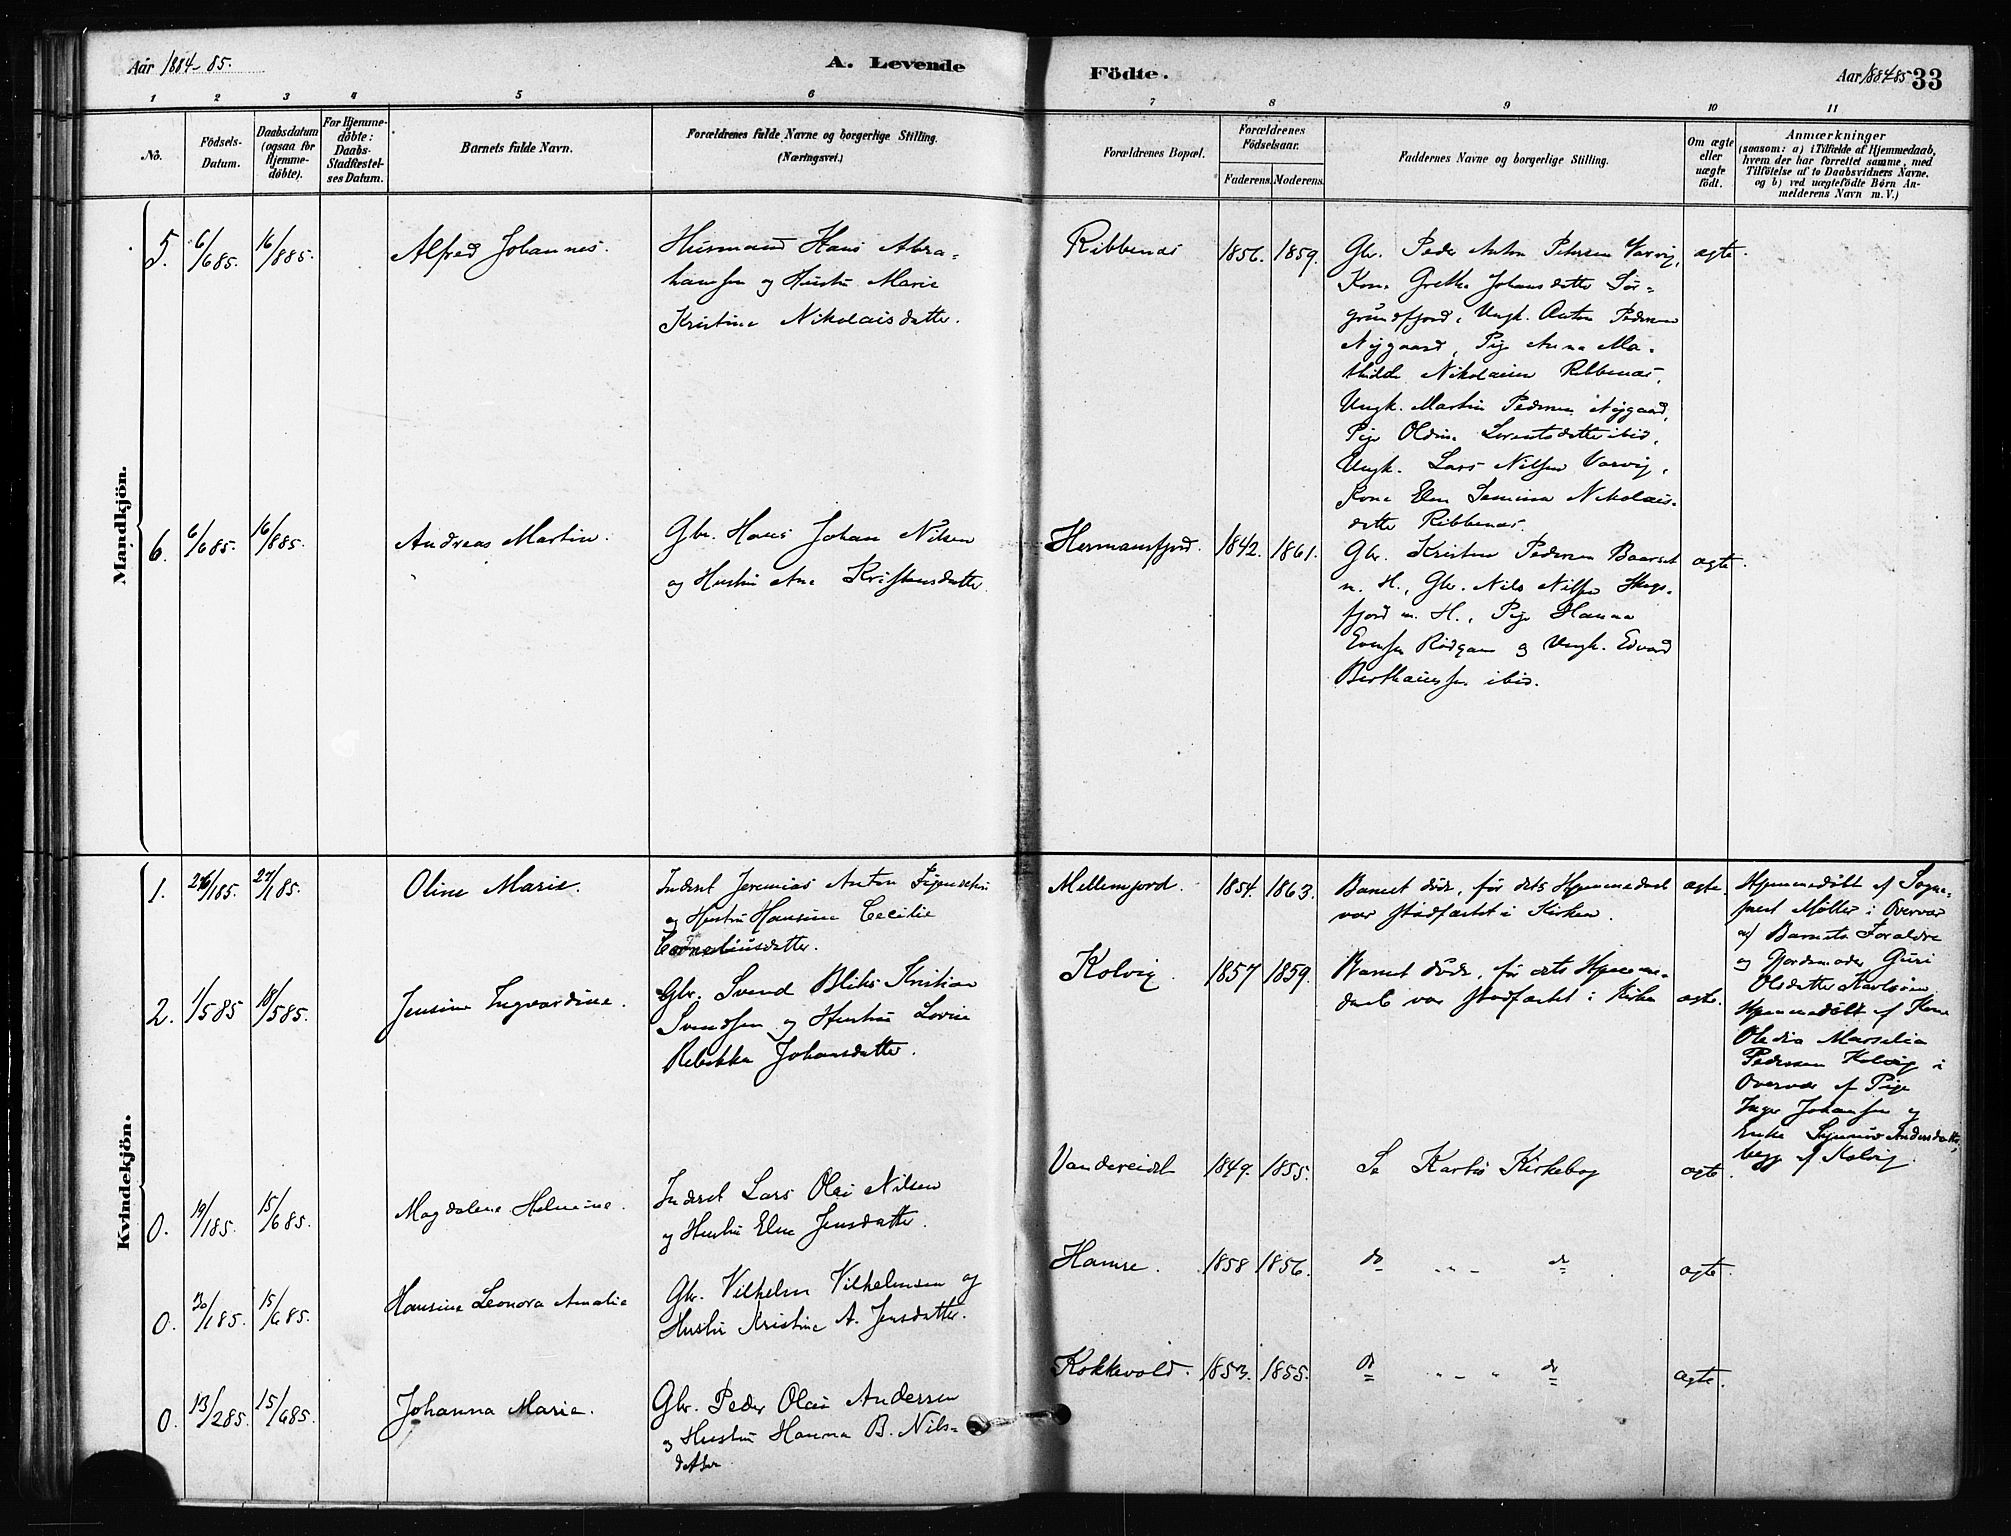 Aar 1884-85.
A. Levende
Födte.
Aar 1884-85 33
1 2 3 4 5 6 7 8 9 10 11
No.
Födsels-
Datum.
Daabsdatum
(ogsaa for
Hjemme-
döbte).
For Hjemme-
döbte:
Daabs-
Stadfæstel-
ses Datum.
Barnets fulde Navn.
Forældrenes fulde Navne og borgerlige Stilling.
(Næringsvei.)
Forældrenes Bopæl.
Forældrenes
Födselsaar.
Faderens. Moderens.
Faddernes Navne og borgerlige Stilling.
Om ægte
eller
uægte
födt.
Anmærkninger
(saasom: a) i Tilfælde af Hjemmedaab,
hvem der har forrettet samme, med
Tilföielse af to Daabsvidners Navne.
og b) ved uægtefödte Børn An-
melderens Navn m. V.)
Mandkjön.
5. 6/685. 16/885. Alfred Johannes.
Husmand Hans Abra-
hamsen og Hustru Marie
Kristine Nikolaisdatter.
Ribbenæs 1856. 1859.
Gbr. Peder Anton Petersen Varvig,
Kone Grethe Johansdatter Sør-
grundfjord, Ungk. Anton Pedersen
Nygaard, Pige Anna Ma-
thilde Nikolaisen Ribbenæs,
Ungk. Martin Pedersen Nygaard,
Pige Oldine Lorentsdatter ibid,
Ungk. Lars Nilsen Varvig,
Kone Elen Nikolais-
datter Ribbenæs.
ægte.
6. 6/685. 16/885. Andreas Martin.
Gbr. Hans Johan Nilsen
og Hustru Ane Kristensdatter.
Hermansfjord. 1842. 1861.
Gbr. Kristen Pedersen Baarset
m. H., Gbr. Nils Nilsen Skogs-
fjord m. H., Pige Hanna
Evensen Rødgam og Ungk. Edvard
Berthäussen ibid.
ægte.
Kvindekjön.
1. 26/185. 27/185. Oline Marie.
Inderst Jeremias Anton
og Hustru Hansine Cecilie
Corneliusdatter.
Mellemjord. 1854. 1863.
Barnet døde, før dets Hjemmedaab
var stadfæstet i Kirken.
ægte.
Hjemmedøbt af Sogne-
prest Møller i Overvær
af Barnets Forældre
og Gjordemoder Guri
Olsdatter Karlsøen.
2. 1/585 10/585. Jensine Ingvardine.
Gbr. Svend Bliks Kristian
Svendsen og Hustru Lovise
Rebekka Johansdatter.
Kolvig 1857 1859.
Barnet døde, før dets Hjemme-
daab var stadfæstet i Kirken
ægte.
Hjemmedøbt af Kone
Oledia Marselia
Pedersen Kolvig i
Overvær af Pige
Inger Johansen og
Enke Synnøv Andersdatter,
begge af Kolvig.
0. 19/185. 15/685. Magdalene Helmine.
Inderst Lars Olai Nilsen
og Hustru Elen Jensdatter.
Vandereidet 1849. 1855.
Se Karlsø Kirkebog
ægte.
0. 30/185. 15/685. Hansine Leonora Amalie
Gbr. Vilhelm Vilhelmsen og
Hustru Kristine A. Jensdatter.
Hamre. 1858 1856.
do " - do
ægte.
0. 13/285. 15/685. Johanna Marie.
Gbr. Peder Olai Andersen
og Hustru Hanna B. Nils-
datter
Kokkvold. 1853. 1855.
do " - " do
ægte.